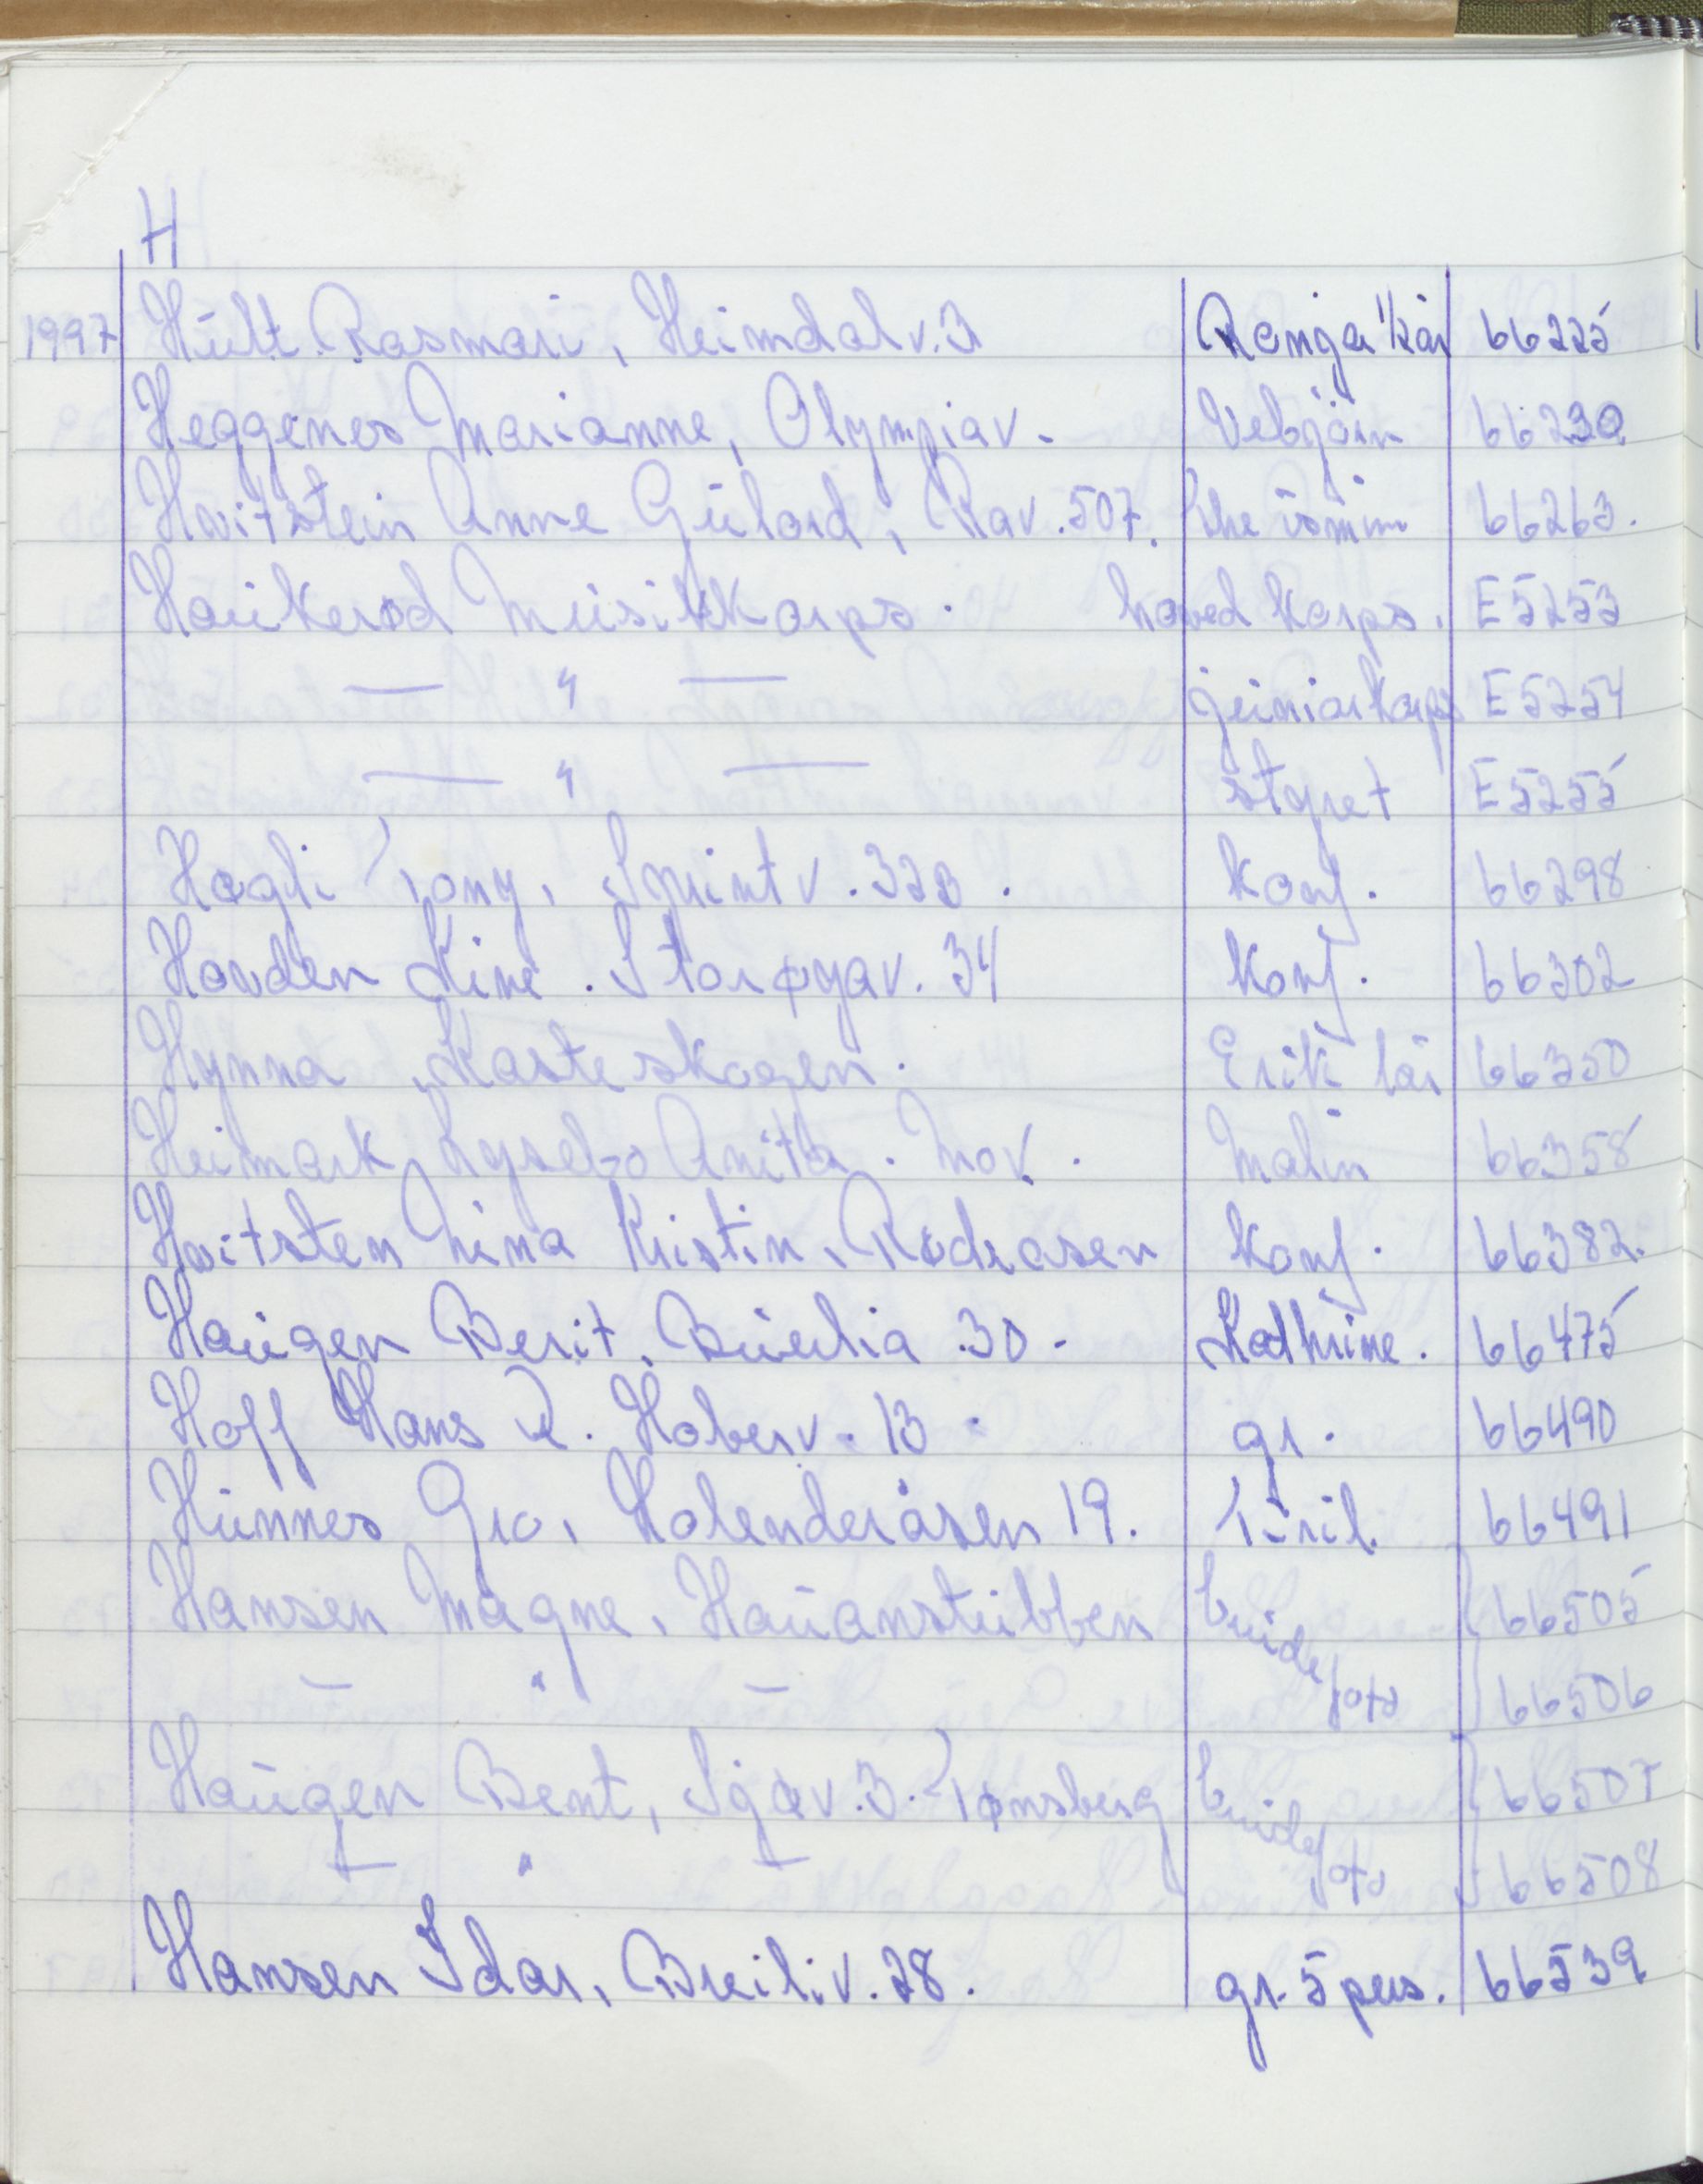 H
1997 Hult Rosmari, Heimdalv. 3 Ronja 1/2 år 66225
Heggenes Marianne, Olympiav. Vebjörn 66230
Hvitstein Anne Gulord, Rav. 507. 66263.
Haukerød Musikkorps. hoved korps. E5253
— " — juniorkorps E5254
— " — styret E5255
Høgli Tony, Sprintv. 323. Konf. 66298
Hovden Line. Storøyav. 34 Konf. 66302
Hynna, Skarteskogen. Erik 1 år 66350
Heimark Lysebo Anita. Mov. Malin 66358
Hvitsten Nina Kristin, Rødsåsen Konf. 66382.
Haugen Berit, Buerlia 30. Kathrine. 66475
Hoff Hans R. Hobergv. 13. gr. 66490
Hunnes Gro, Kolenderåsen 19. Tiril. 66491
Hansen Magne, Hauanstubben brudefoto 66505
— " — 66506
Haugen Bent, Sjøv. 3. Tønsberg brudefoto 66507
— " — 66508
Hansen Idar, Breiliv. 28. gr. 5 pers. 66539